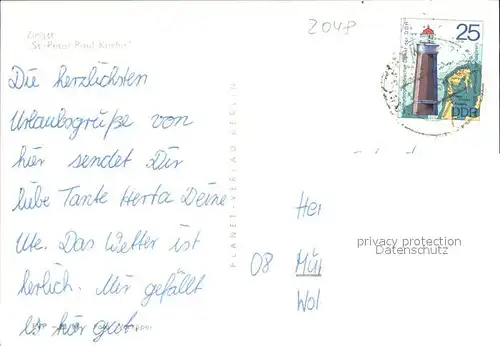 Zingst
"St.-Peter-Paul-Kirche"
2048
25
DDR
Die herzlichsten
Urlaubsgrüße von
hier sendet Dir
liebe Tante Herta Deine
Ute. Das Wetter ist
herlich. Mir gefällt
es hier gut.
PLANET-VERLAG BERLIN
Her
08 Mü
Wol
privacy protection
Datenschutz